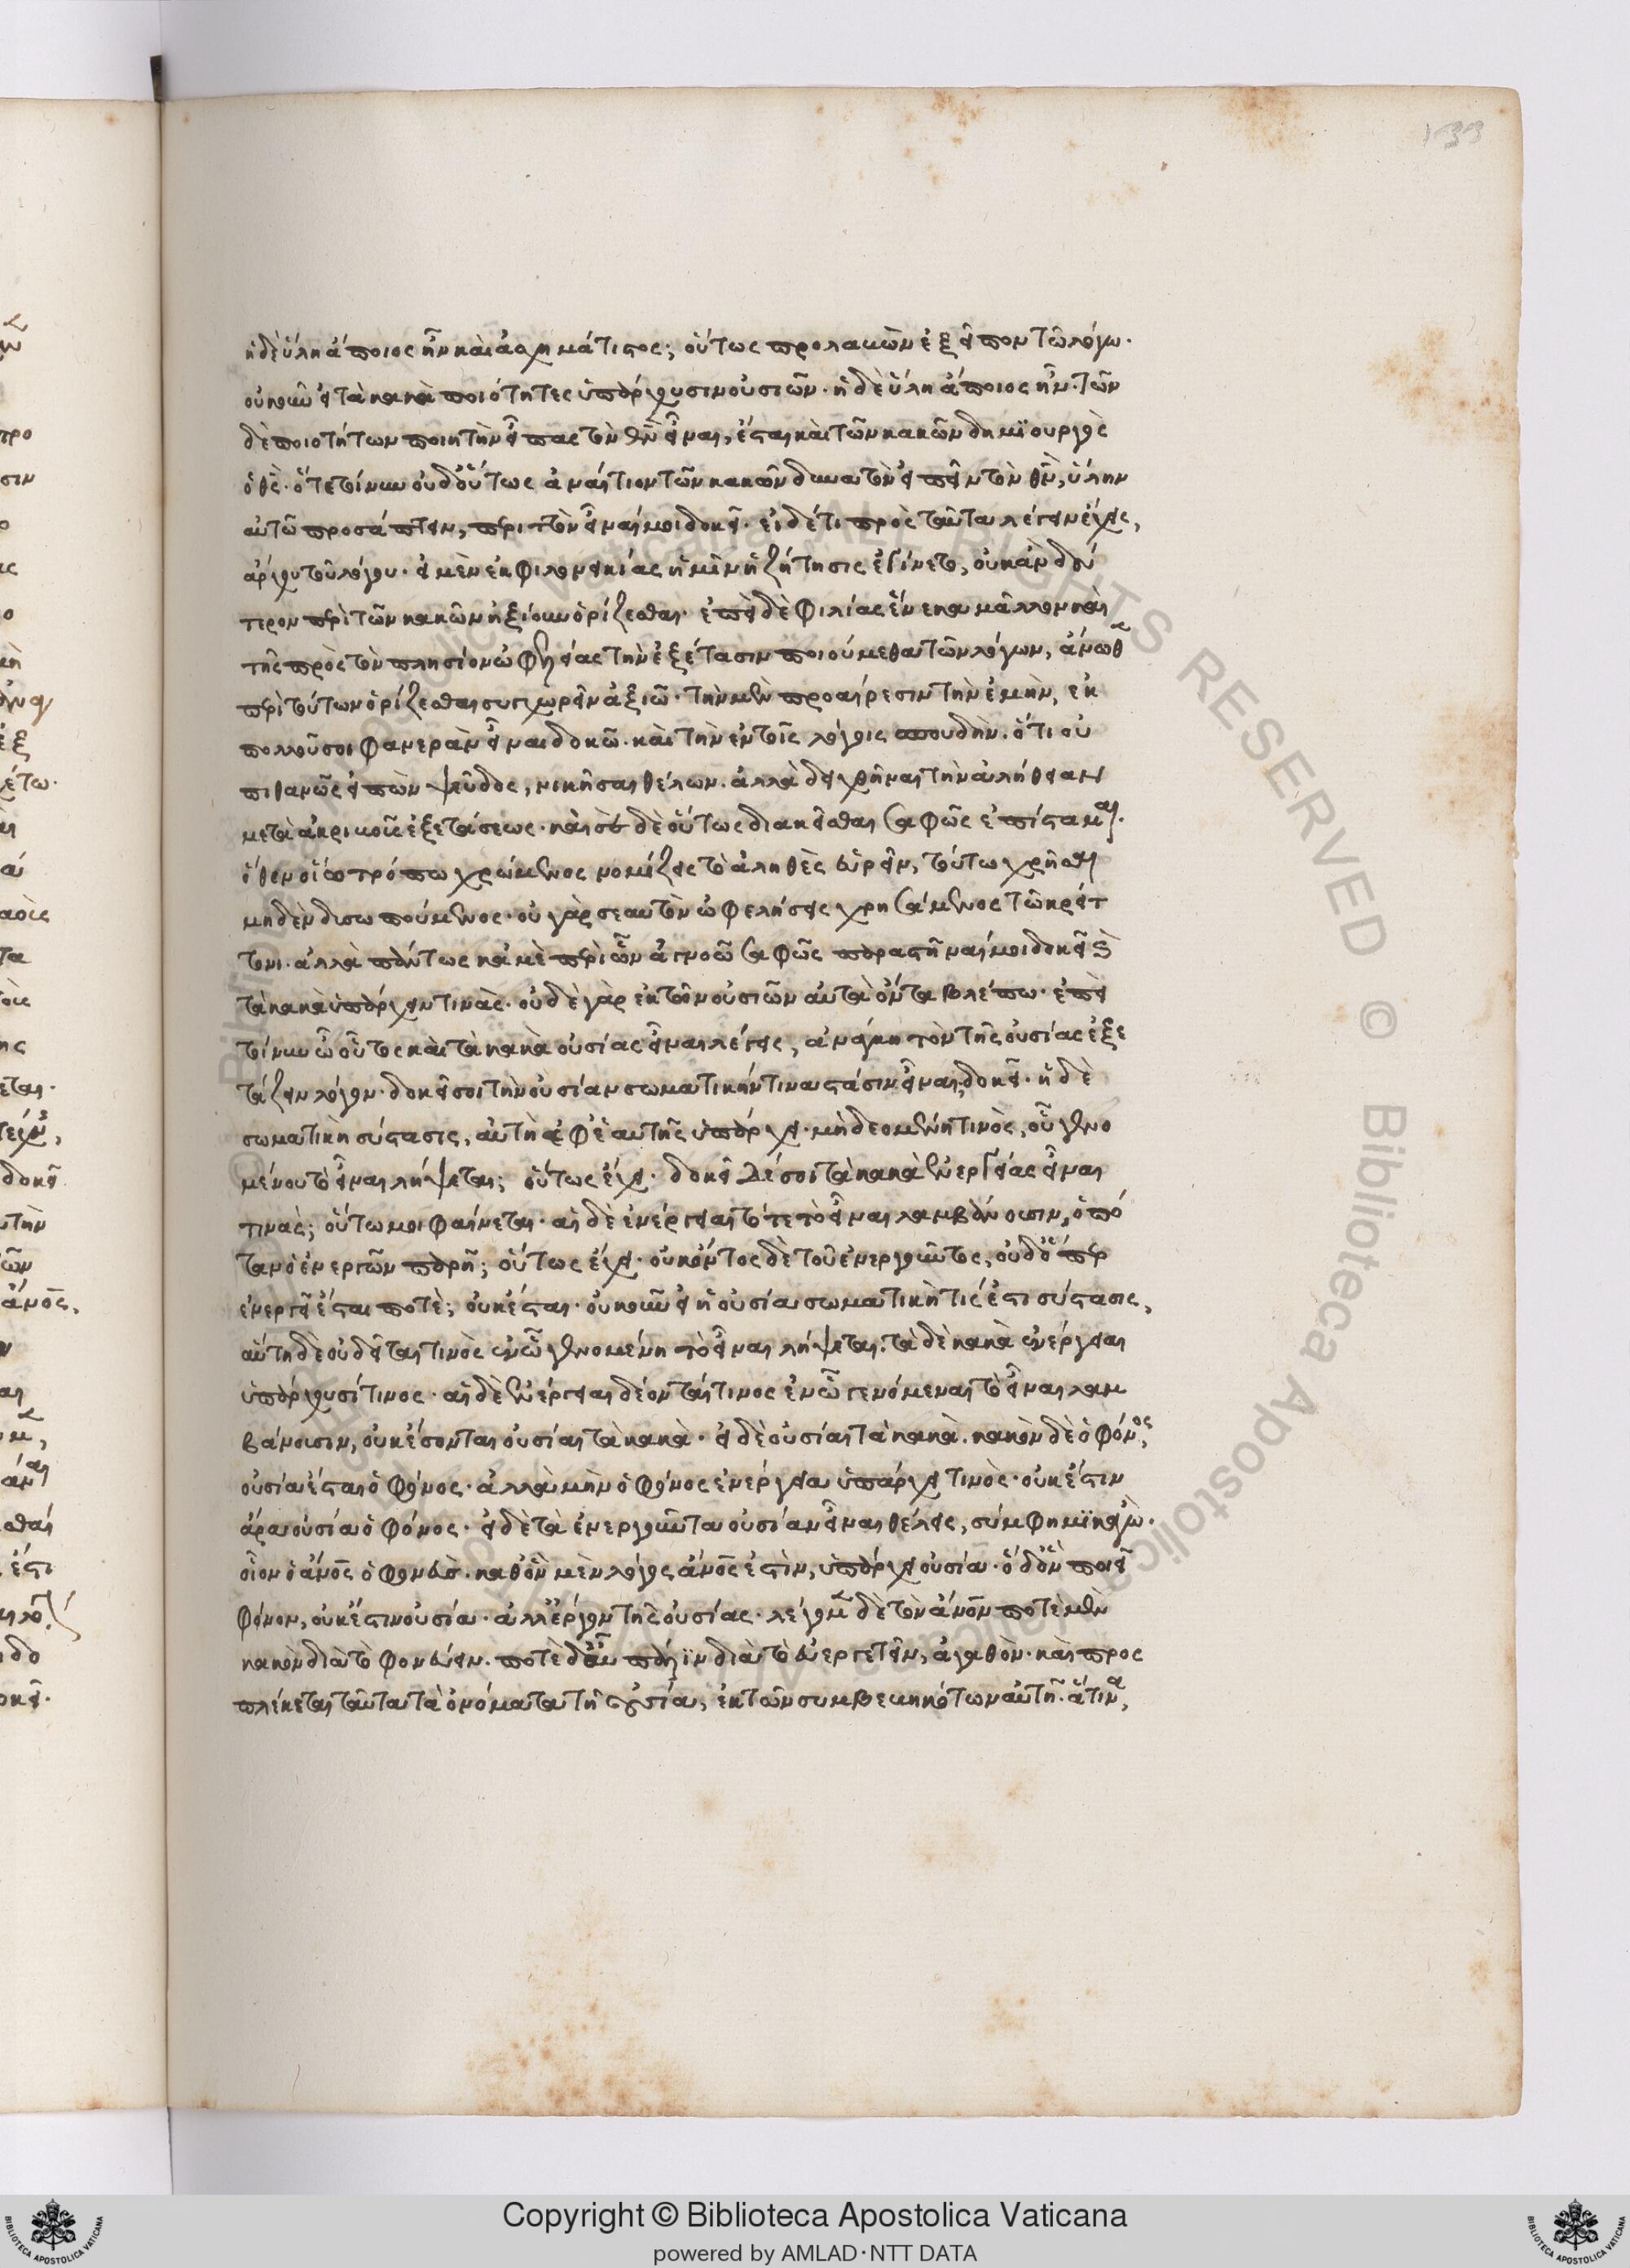 133
ἡ δὲ ὕλη ἄποιος ἦν καὶ ἀσχημάτιστος; οὕτως προλαβὼν ἐξεῖπον τῶ λόγω.
οὐκοῦν εἰ τὰ κακὰ ποιότητες ὑπάρχουσιν οὐσιῶν· ἡ δὲ ὕλη ἄποιος ἦν· τῶν
δὲ ποιοτήτων ποιητὴν εἶπας τὸν θν̅ εἶναι, ἔσται καὶ τῶν κακῶν δημϊουργὸς
ὁ θς̅· ὅτε τοίνυν οὐδ' οὕτως ἀναίτιον τῶν κακῶν δυνατὸν εἰπεῖν τὸν θν̅, ὕλην
αὐτῶ προσάπτειν, περιττὸν εἶναί μοι δοκεῖ· εἰ δέ τι πρὸς ταῦτα λέγειν ἔχεις,
ἄρχου τοῦ λόγου· εἰ μὲν ἐκ φιλονεικίας ἡμῖν ἡ ζήτησις ἐγίνετο, οὐκ ἂν δεύ
τερον περὶ τῶν κακῶν ἠξίουν ὁρίζεσθαι· ἐπεὶ δὲ φιλίας ἕνεκα μᾶλλον καὶ
τῆς πρὸς τὸν πλησίον ὠφελείας τὴν ἐξέτασιν ποιούμεθα τῶν λόγων, ἄνωθεν
περὶ τούτων ὁρίζεσθαι συγχωρεῖν ἀξιῶ· τὴν μὲν προαίρεσιν τὴν ἐμὴν, ἐκ
πολλοῦ σοι φανερὰν εἶναι δοκῶ· καὶ τὴν ἐν τοῖς λόγοις σπουδὴν· ὅτι οὐ
πιθανῶς εἰπὼν ψεῦδος, νικῆσαι θέλων· ἀλλὰ δειχθῆναι τὴν ἀλήθειαν
μετὰ ἀκριβοῦς ἐξετάσεως· καὶ σὲ δὲ οὕτως διακεῖσθαι σαφῶς ἐπίσταμαι·
ὅθεν οἵω τρόπω χρώμενος νομίζεις τὸ ἀληθὲς εὑρεῖν, τούτω χρῆσαι
μηδὲν δυσωπούμενος· οὐ γὰρ σεαυτὸν ὠφελήσεις χρησάμενος τῶ κρείτ
τονι· ἀλλὰ πάντως κἀμὲ περὶ ὧν ἀγνοῶ σαφῶς παραστῆναί μοι δοκεῖς
τὰ κακὰ ὑπάρχειν τινὰς· οὐδὲ γὰρ ἐκτὸς οὐσιῶν αὐτὰ ὄντα βλέπω· ἐπεὶ
τοίνυν ὦ οὗτος καὶ τὰ κακὰ οὐσίας εἶναι λέγεις, ἀνάγκη τὸν τῆς οὐσίας ἐξε
τάζειν λόγον· δοκεῖ σοι τὴν οὐσίαν σωματικήν τινα στάσιν εἶναι; δοκεῖ· ἡ δὲ
σωματικὴ σύστασις, αὐτὴ ἐφ' ἑαυτῆς ὑπάρχει· μὴ δεομένη τινὸς, οὗ γενο
μένου τὸ εἶναι λήψεται; οὕτως ἔχει· δοκεῖ δέ σοι τὰ κακὰ ἐνεργείας εἶναι
τινὰς; οὕτω μοι φαίνεται· αἱ δὲ ἐνέργειαι τότε τὸ εἶναι λαμβάνουσιν, ὁπό
ταν ὁ ἐνεργῶν παρῆ; οὕτως ἔχει· οὐκ ὄντος δὲ τοῦ ἐνεργοῦντος, οὐδ' ὅπερ
ἐνεργεῖ ἔσται ποτὲ; οὐκ ἔσται· οὐκοῦν εἰ ἡ οὐσία σωματικὴ τίς ἐστι σύστασις,
αὕτη δὲ οὐ δεῖται τινὸς ἐν ὧ γενομένη τὸ εἶναι λήψεται· τὰ δὲ κακὰ ἐνέργειαι
ὑπάρχουσί τινος· αἱ δὲ ἐνέργειαι δέονταί τινος ἐν ὧ γενόμεναι τὸ εἶναι λαμ
βάνουσιν, οὐκ ἔσονται οὐσίαι τὰ κακὰ· εἰ δὲ οὐσίαι τὰ κακὰ· κακὸν δὲ ὁ φόνος,
οὐσία ἔσται ὁ φόνος· ἀλλὰ μὴν ὁ φόνος ἐνέργεια ὑπάρχει τινὸς· οὐκ ἔστιν
ἄρα οὐσία ὁ φόνος· εἰ δὲ τὰ ἐνεργοῦντα οὐσίαν εἶναι θέλεις, σύμφημϊ κἀγὼ·
οἷον ὁ ἄνος̅ ὁ φονεὺς· καθ' ὃν μὲν λόγος ἄνος̅ ἐστὶν, ὑπάρχει οὐσία· ὁ δ' ὃν ποιεῖ
φόνον, οὐκ ἔστιν οὐσία· ἀλλ' ἔργον τῆς οὐσίας· λέγομεν δὲ τὸν ἄνον̅ ποτὲ μὲν
κακὸν διὰ τὸ φονεύειν· ποτὲ δ' αὖ πάλϊν διὰ τὸ εὐεργετεῖν, ἀγαθὸν· καὶ προς
πλέκεται ταῦτα τὰ ὀνόματα τῆ οὐσία, ἐκ τῶν συμβεβηκότων αὐτῆ· ἅτινα,
Copyright © Biblioteca Apostolica Vaticana
powered by AMLAD·NTT DATA